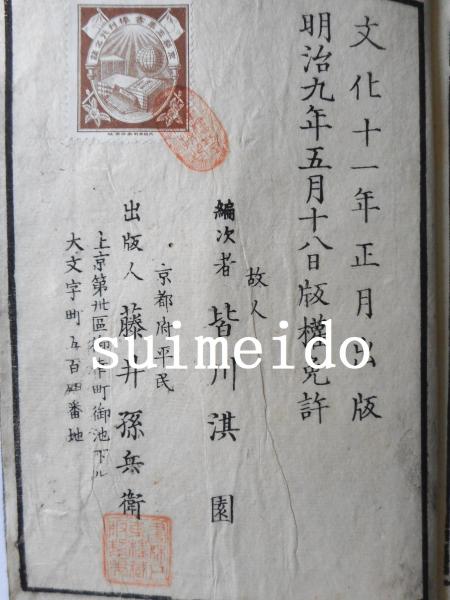 文化十一年正月出版
明治九年五月十八日版權免許
故人
編次者 皆川淇園
京都府平民
出版人 藤井孫兵衛
上京第卅區 町御池下ル
大文字町五百四番地
suimeido